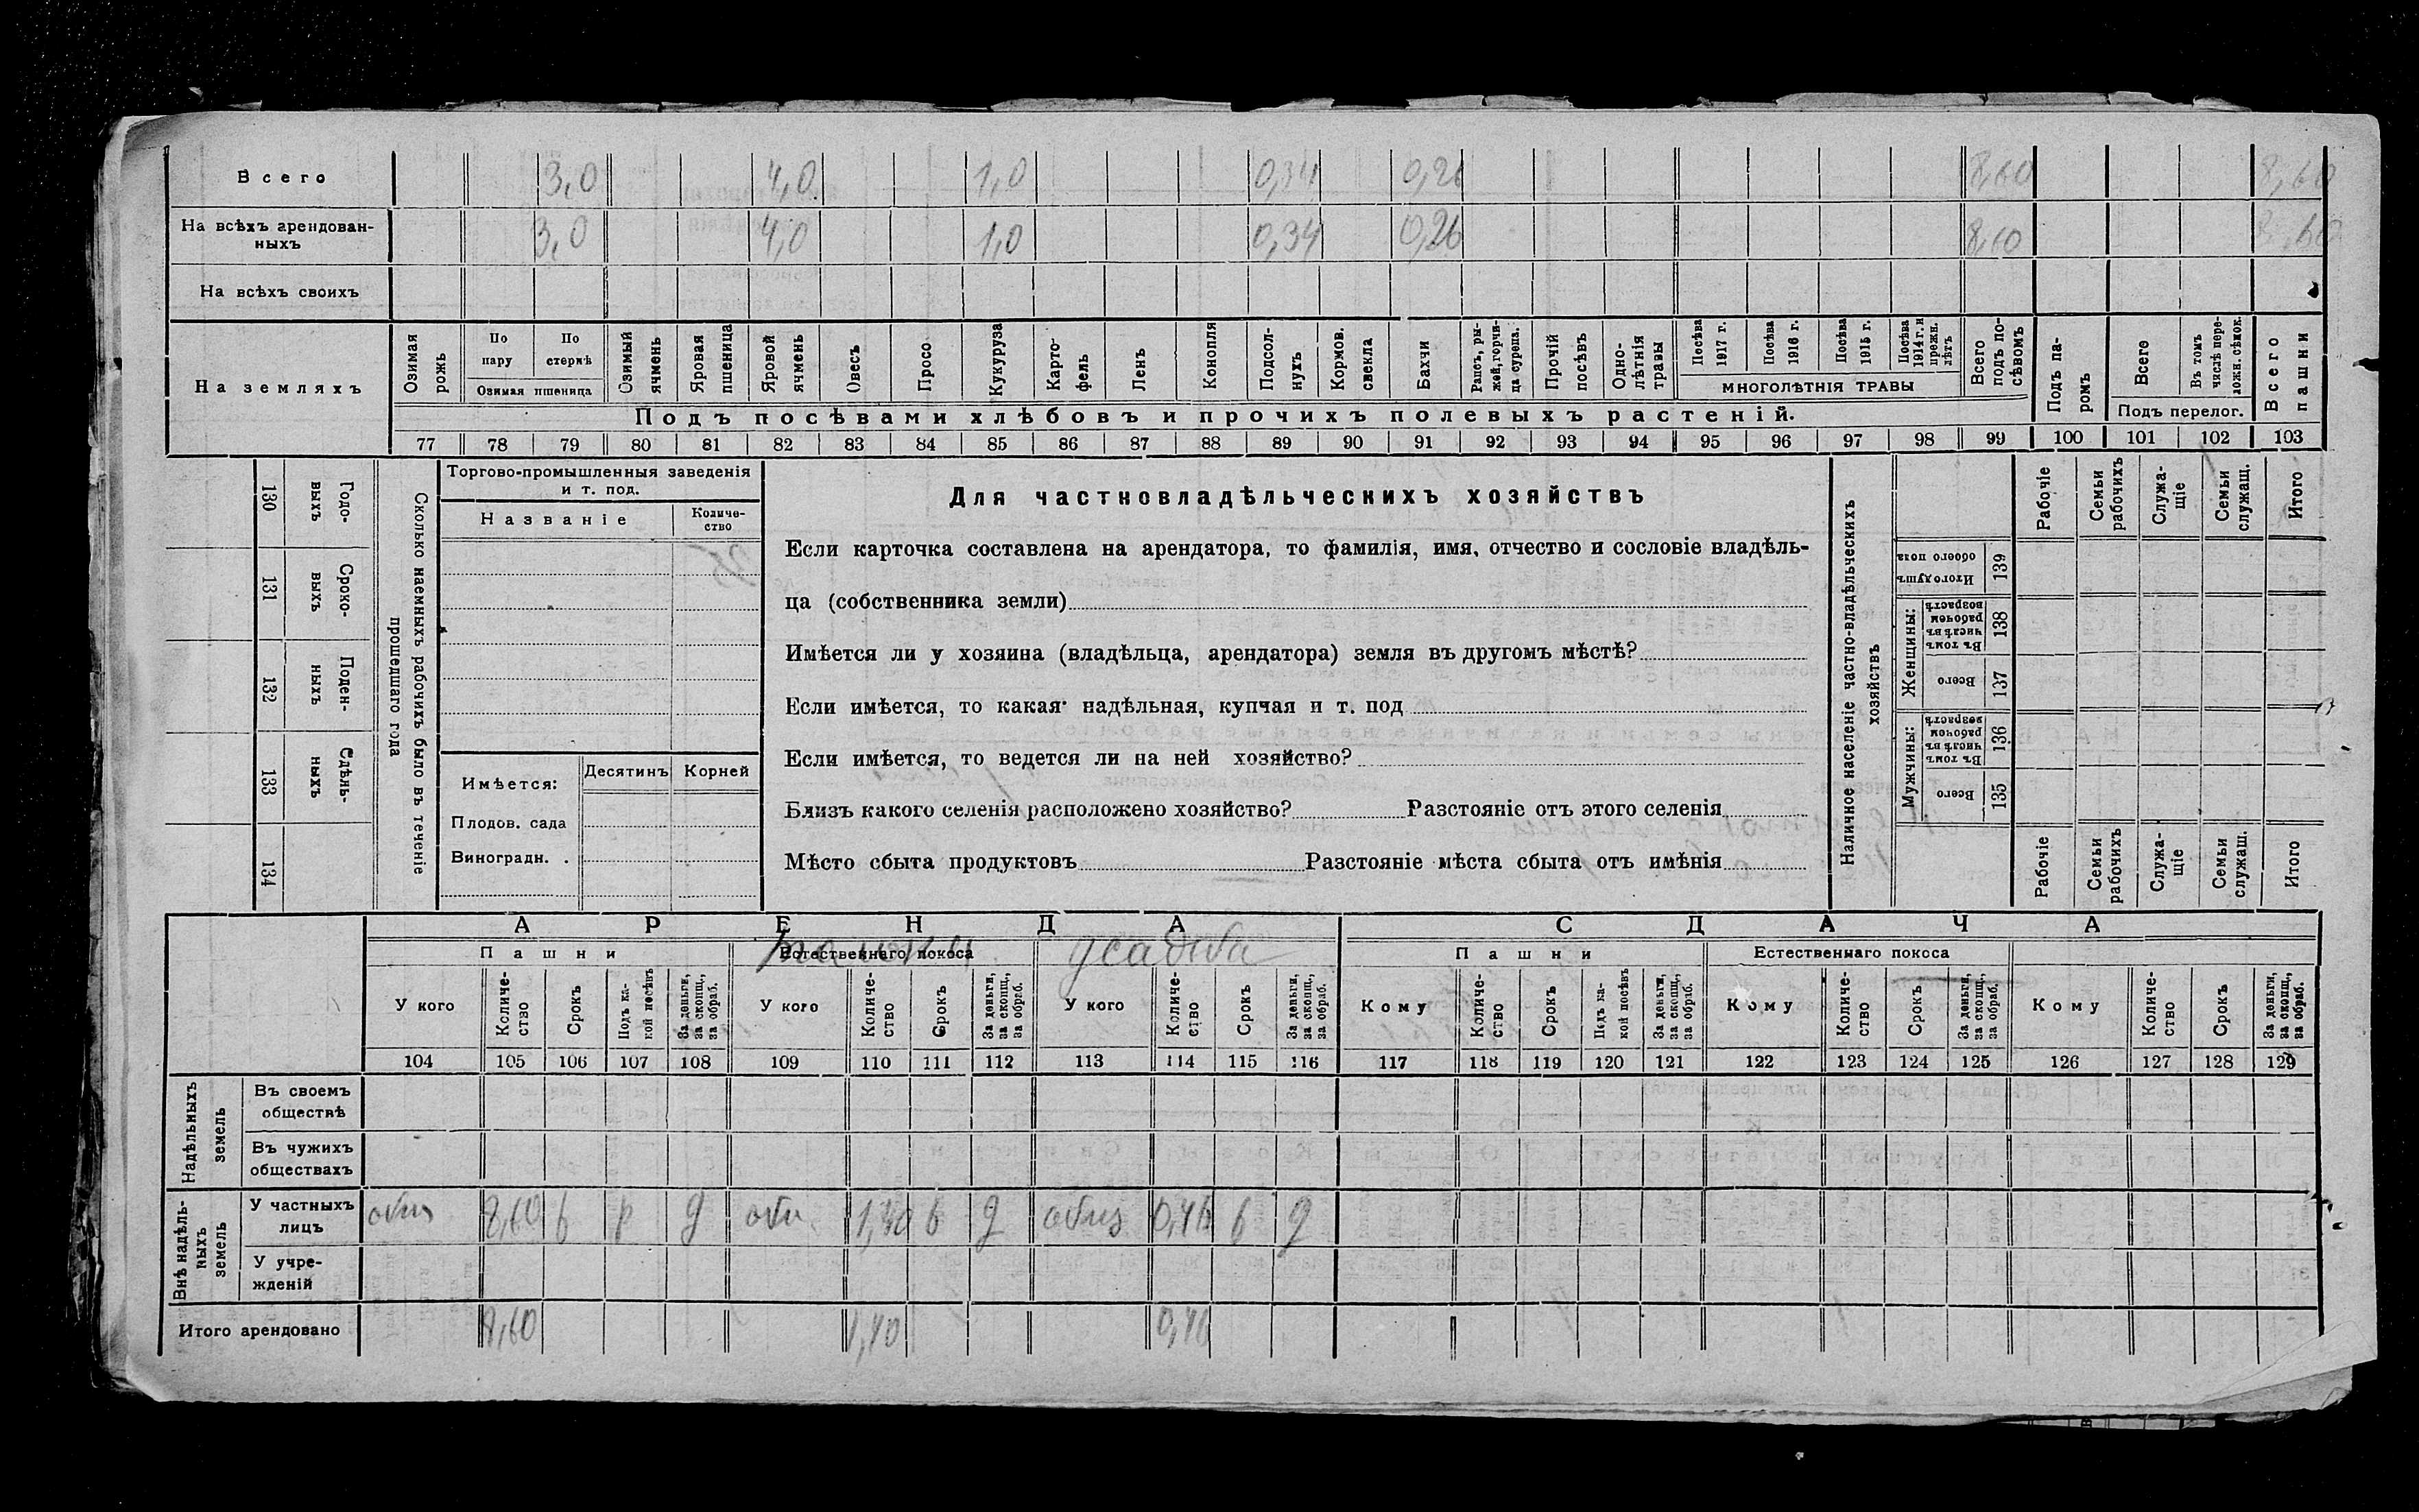 Всего 3,0 4,0 1,0 0,34 0,26 8,60 8,60
На всѣхъ арендован-
ныхъ 3,0 4,0 1,0 0,34 0,26 8,60 8,60
На всѣхъ своихъ
На земляхъ
Озимая рожь
По пару
По стернѣ
Озимая пшеница
Озимый ячмень
Яровая пшеница
Яровой ячмень
Овесъ
Просо
Кукуруза
Карто-
фель
Ленъ
Конопля
Подсол-
нухъ
Кормов.
свекла
Бахчи
Рапсъ, ры-
жей, горчи-
ца сурепа.
Прочій
посѣвъ
Одно-
лѣтнія
травы
Посѣва 1917 г.
Посѣва 1916 г.
Посѣва 1915 г.
Посѣва 1914 г. и прежн. лѣтъ
МНОГОЛѢТНІЯ ТРАВЫ
Всего подъ по-
сѣвомъ
Подъ па-
ромъ
Всего
Въ томъ числѣ пере-
ложн. сѣнок.
Подъ перелог.
Всего пашни
Подъ посѣвами хлѣбовъ и прочихъ полевыхъ растеній.
77 78 79 80 81 82 83 84 85 86 87 88 89 90 91 92 93 94 95 96 97 98 99 100 101 102 103
130 Годо-
выхъ
131 Сроко-
выхъ
132 Поден-
ныхъ
133 Сдѣль-
ныхъ
134
Сколько наемныхъ рабочихъ было въ теченіе
прошедшаго года
Торгово-промышленныя заведенія
и т. под.
Названіе
Количе-
ство
Имѣется:
Десятинъ
Корней
Плодов. сада
Виноградн. .
Для частновладѣльческихъ хозяйствъ
Если карточка составлена на арендатора, то фамилія, имя, отчество и сословіе владѣль-
ца (собственника земли)
Имѣется ли у хозяина (владѣльца, арендатора) земля въ другомъ мѣстѣ?
Если имѣется, то какая· надѣльная, купчая и т. под
Если имѣется, то ведется ли на ней хозяйство?
Близъ какого селенія расположено хозяйство? Разстояніе отъ этого селенія
Мѣсто сбыта продуктовъ Разстояніе мѣста сбыта отъ имѣнія
Наличное населеніе частно-владѣльческихъ
хозяйствъ
Рабочіе
Семьи рабочихъ
Служа-
щіе
Семьи служащ.
Итого
Итого душъ обоего пола 139
Женщины:
Въ томъ числѣ въ рабочемъ возрастѣ 138
Всего 137
Мужчины:
Въ томъ числѣ въ рабочемъ возрастѣ 136
Всего 135
Рабочіе
Семьи рабочихъ
Служа-
щіе
Семьи служащ.
Итого
АРЕНДА
СДАЧА
Пашни
Естественнаго покоса
усадьба
Пашни
Естественнаго покоса
У кого
Количе-
ство
Срокъ
Подъ ка-
кой посѣвъ
За деньги,
за скопщ.,
за обраб.
У кого
Количе-
ство
Срокъ
За деньги,
за скопщ.,
за обраб.
У кого
Количе-
ство
Срокъ
За деньги,
за скопщ.,
за обраб.
Кому
Количе-
ство
Срокъ
Подъ ка-
кой посѣвъ
За деньги,
за скопщ.,
за обраб.
Кому
Количе-
ство
Срокъ
За деньги,
за скопщ.,
за обраб.
Кому
Количе-
ство
Срокъ
За деньги,
за скопщ.,
за обраб.
104 105 106 107 108 109 110 111 112 113 114 115 116 117 118 119 120 121 122 123 124 125 126 127 128 129
Надѣльныхъ
земель
Въ своемъ
обществѣ
Въ чужихъ
обществахъ
Внѣ надѣль-
ныхъ
земель
У частныхъ
лицъ 8,60 6 р д 1,40 6 д 0,46 6 д
У учре-
жденій
Итого арендовано 8,60 1,40 0,46